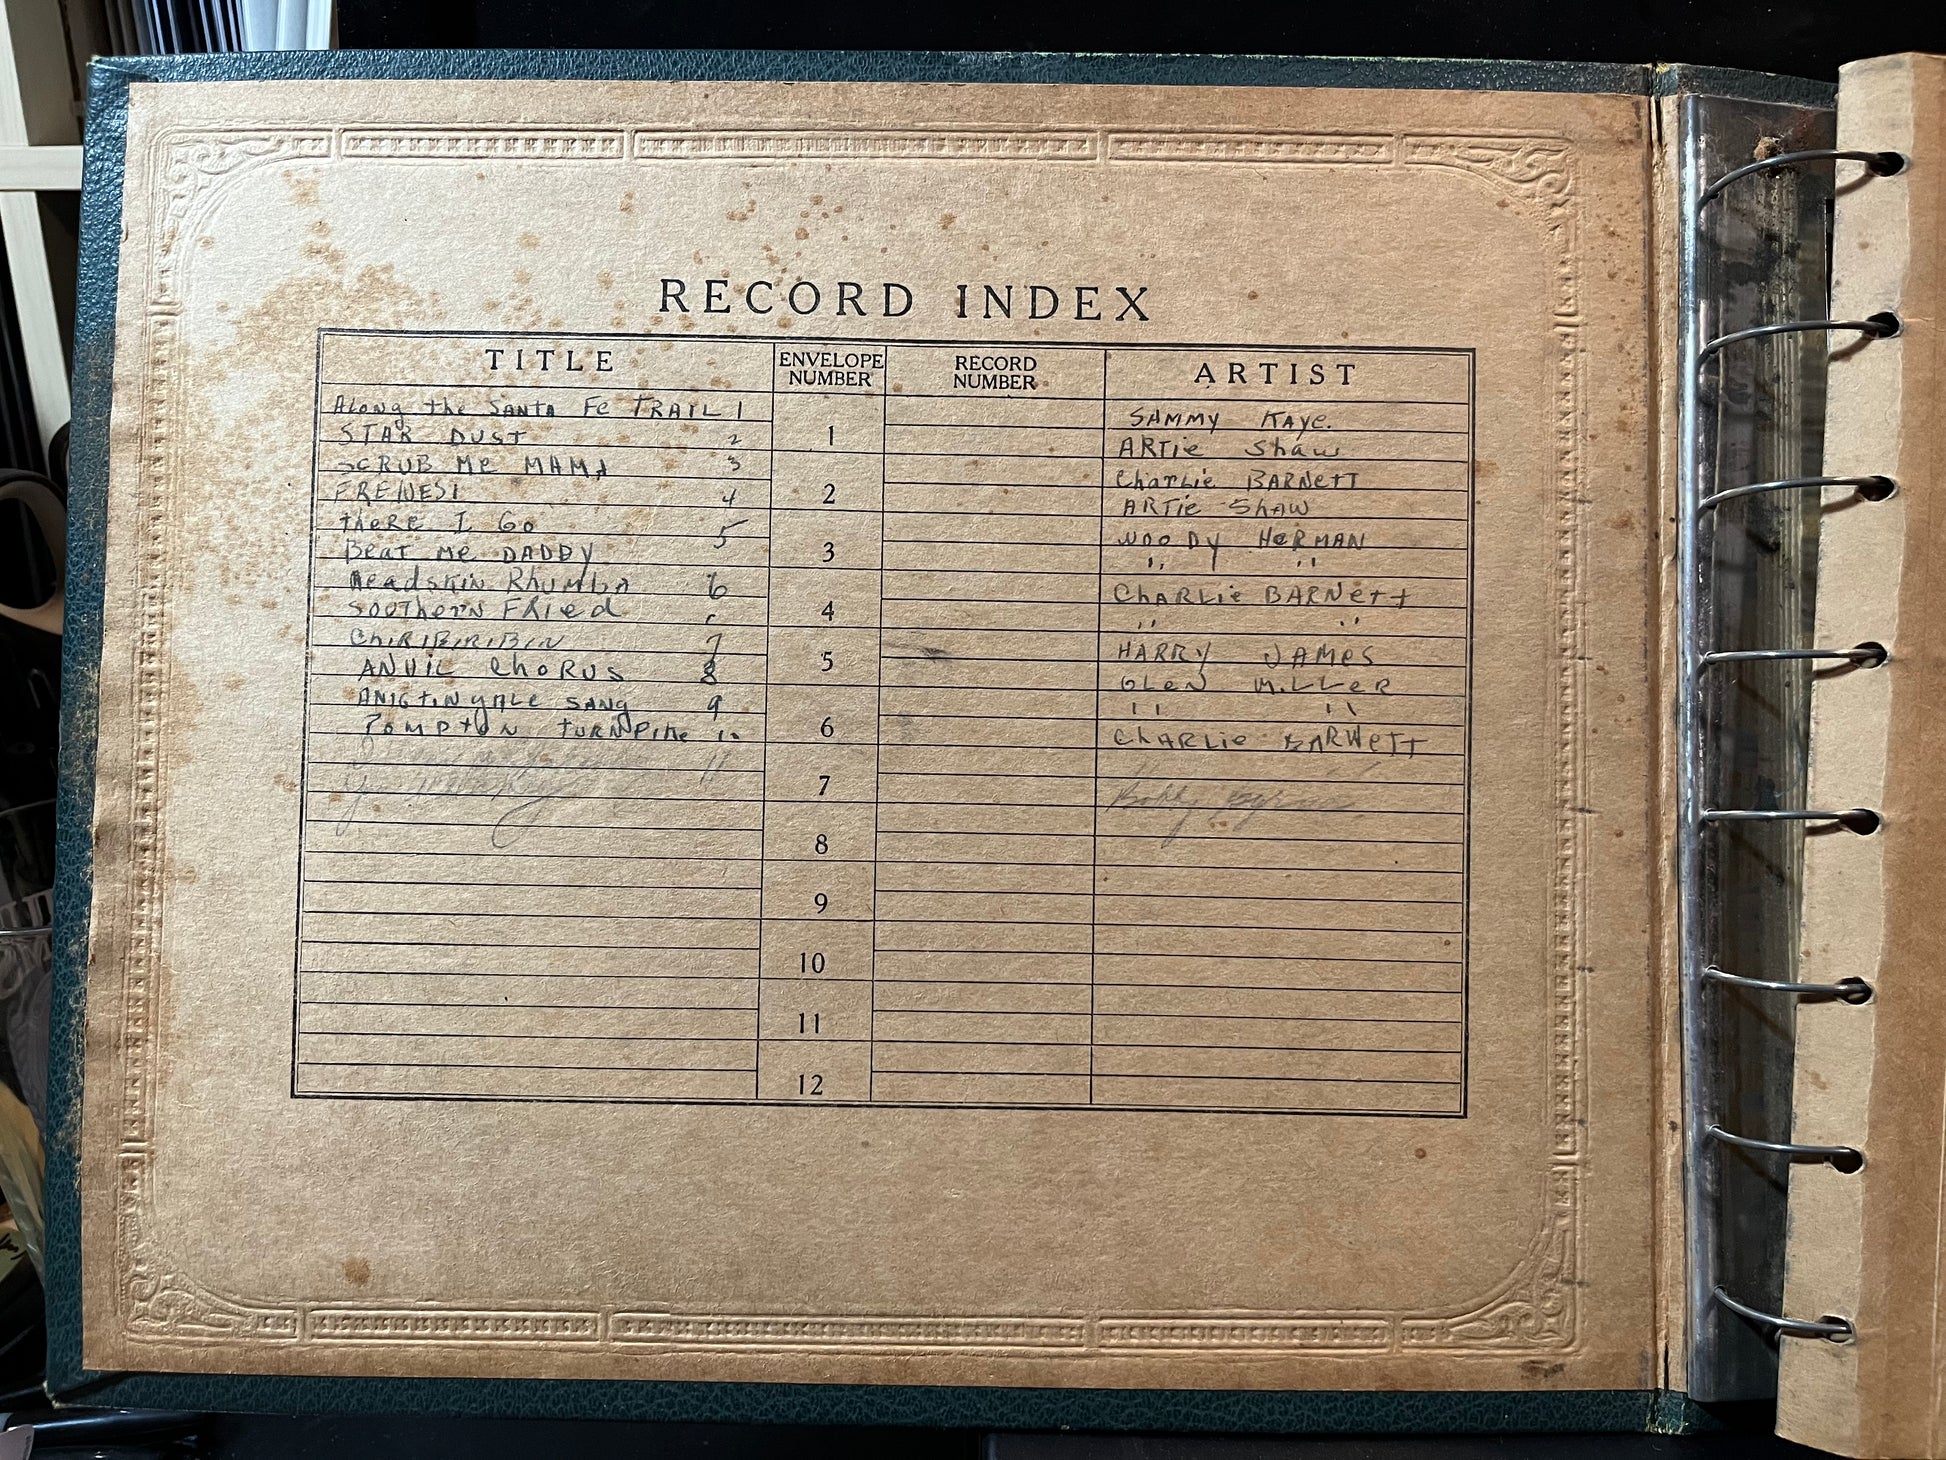 RECORD INDEX
TITLE ENVELOPE NUMBER RECORD NUMBER ARTIST
Along the SANTA Fe TRAIL 1 SAMMY KAYE.
STAR DUST 2 1 ARTie Shaw
SCRUB Me MAMA 3 CharLie BARNeTT
FRENESI 4 2 ARTie ShAW
theRE I Go 5 WOODY HeRMAN
Beat me DADDY 3 " "
Headskin Rhumba 6 ChARLie BARNett
SOUTherN FRied 4 " "
ChiRIBIRIBIN 7 HARRY JAMes
ANVIL ChoRUS 8 5 GLeN MiLLeR
ANIGTiNgALe SANg 9 " "
POMPtoN tURNPike 10 6 ChARLie BARNeTT
11
7 Bobby
8
9
10
11
12